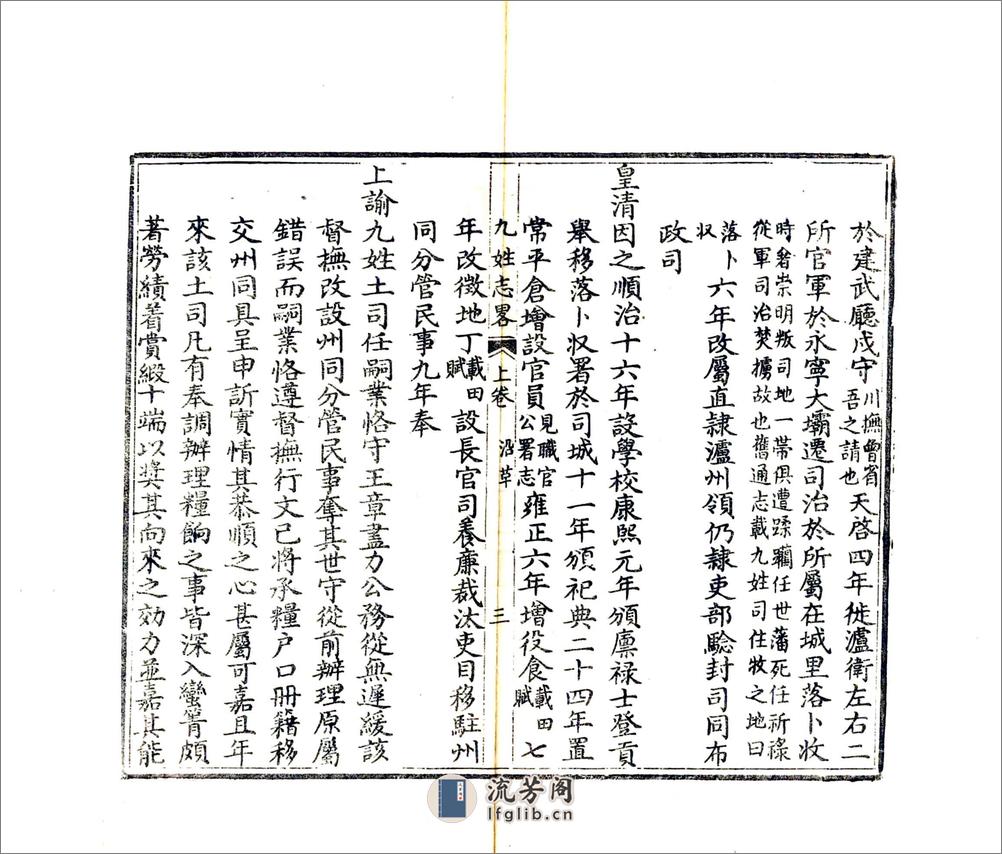 於建武廳戍守川撫曾省吾之請也天啓四年徙瀘衛左右二
所官軍於永寧大壩遷司治於所屬在城里落卜㚁
時奢崇明叛司地一帶俱遭蹂躪任世藩死任祈祿
從軍司治焚擄故也舊通志載九姓司住牧之地曰
落卜㚁六年改屬直隸瀘州領仍隸吏部驗封司同布
政司
皇清因之順治十六年設學校康熙元年頒廪祿士登貢
舉移落卜㚁署於司城十一年頒祀典二十四年置
常平倉增設官員見職官公署志雍正六年增役食載田賦七
九姓志畧 上卷 沿革 三
年改徵地丁載田賦設長官司養廉裁汰吏目移駐州
同分管民事九年奉
上諭九姓土司任嗣業恪守王章盡力公務從無遲緩該
督撫改設州同分管民事奪其世守從前辦理原屬
錯誤而嗣業恪遵督撫行文已將承糧户口册籍移
交州同具呈申訴實情其恭順之心甚屬可嘉且年
來該土司凡有奉調辦理糧餉之事皆深入蠻箐頗
著勞績着賞緞十端以奬其向來之効力並嘉其能
流芳阁
lfglib.cn